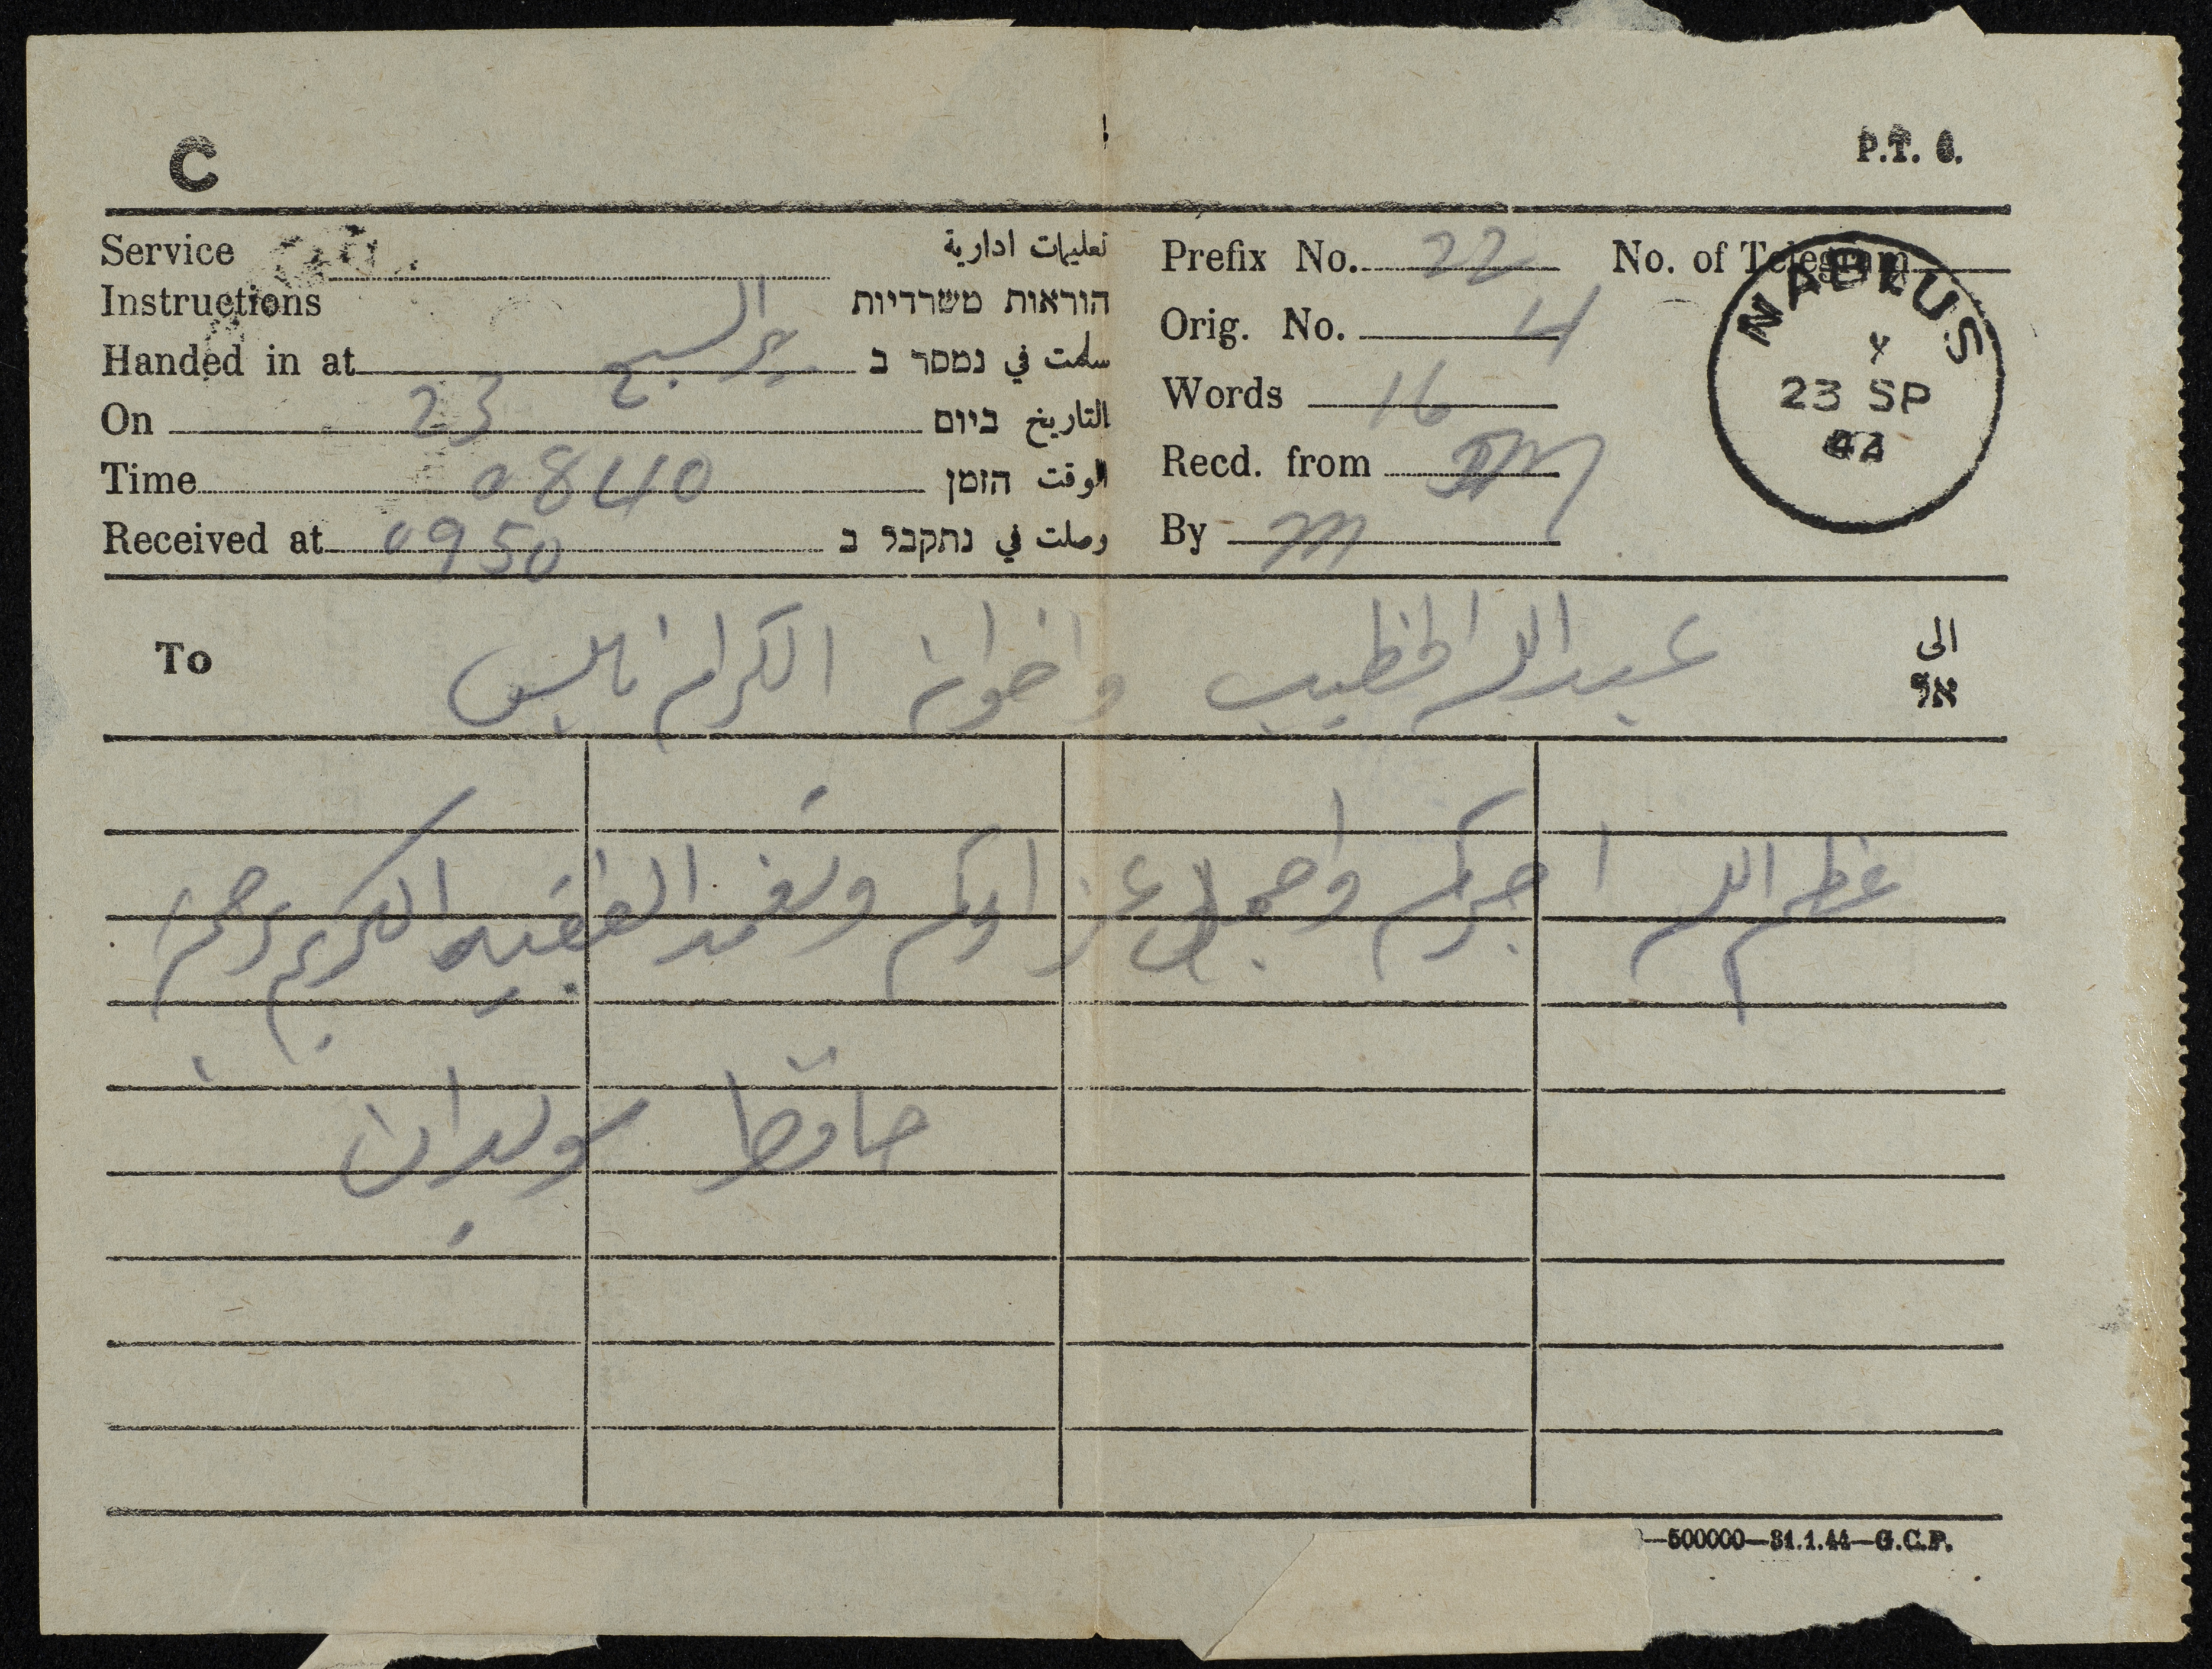 C
P.T. 6.
Service تعليمات ادارية
Instructions הוראות משרדיות
Handed in at سلمت في נמסר ב
On 23 التاريخ ביום
Time 0840 الوقت הזמן
Received at 0950 وصلت في נתקבל ב
Prefix No. 22 No. of Telegram
Orig. No. 4
Words 16
Recd. from
By
NABLUS
23 SP
44
To عبد الله الخطيب واخوانه الكرام نابلس الى
אל
عظم الله اجركم واجمل عزاوكم وتغمد الفقيد الكريم برحمته
حافظ
—500000—31.1.44—G.C.P.